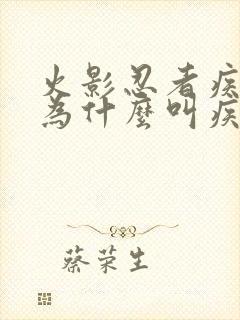 火影忍者疾
為什麼叫疾
蔡荣生